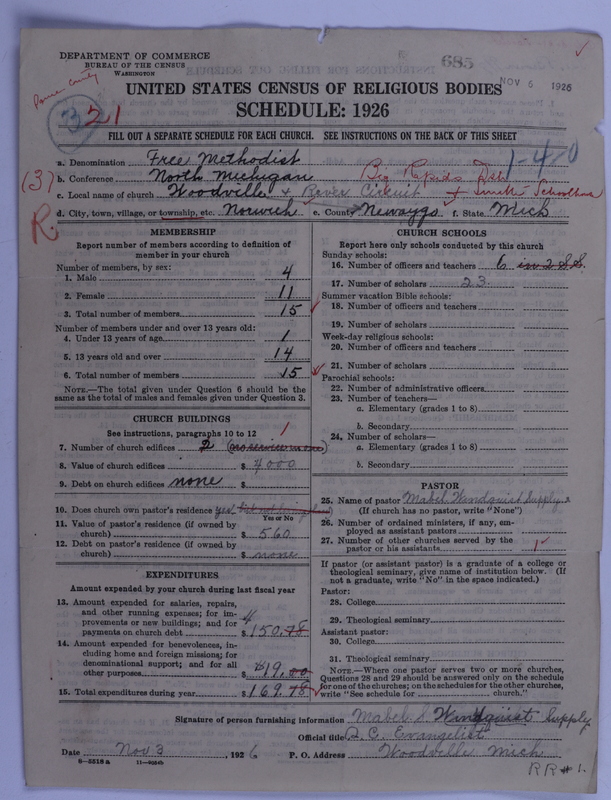 DEPARTMENT OF COMMERCE
BUREAU OF THE CENSUS
WASHINGTON
685
NOV 6 1926
UNITED STATES CENSUS OF RELIGIOUS BODIES
SCHEDULE: 1926
321
FILL OUT A SEPARATE SCHEDULE FOR EACH CHURCH. SEE INSTRUCTIONS ON THE BACK OF THIS SHEET
1-4-0
a. Denomination Free Methodist
(3) b. Conference North Michigan Big Rapids Dist
c. Local name of church Woodville & Circuit
R. d. City, town, village, or township, etc. Norwich e. County Newaygo f. State Mich
MEMBERSHIP
Report number of members according to definition of
member in your church
Number of members, by sex:
1. Male 4
2. Female 11
3. Total number of members 15
Number of members under and over 13 years old:
4. Under 13 years of age 1
5. 13 years old and over 14
6. Total number of members 15
NOTE.—The total given under Question 6 should be
the same as the total of males and females given under Question 3.
CHURCH BUILDINGS
See instructions, paragraphs 10 to 12
7. Number of church edifices 2 1
8. Value of church edifices $ 4000
9. Debt on church edifices none $
10. Does church own pastor's residence yes
Yes or No
11. Value of pastor's residence (if owned by
church) $ 560
12. Debt on pastor's residence (if owned by
church) $ none
EXPENDITURES
Amount expended by your church during last fiscal year
13. Amount expended for salaries, repairs,
and other running expenses; for im-
provements or new buildings; and for
payments on church debt $ 150.78
14. Amount expended for benevolences, in-
cluding home and foreign missions; for
denominational support; and for all
other purposes $ 19.00
15. Total expenditures during year $ 169.78
CHURCH SCHOOLS
Report here only schools conducted by this church
Sunday schools:
16. Number of officers and teachers 6 in 2 S.S.
17. Number of scholars 23
Summer vacation Bible schools:
18. Number of officers and teachers
19. Number of scholars
Week-day religious schools:
20. Number of officers and teachers
21. Number of scholars
Parochial schools:
22. Number of administrative officers
23. Number of teachers—
a. Elementary (grades 1 to 8)
b. Secondary
24. Number of scholars—
a. Elementary (grades 1 to 8)
b. Secondary
PASTOR
25. Name of pastor Mabel Windquist Supply
(If church has no pastor, write "None")
26. Number of ordained ministers, if any, em-
ployed as assistant pastors
27. Number of other churches served by the
pastor or his assistants 1
If pastor (or assistant pastor) is a graduate of a college or
theological seminary, give name of institution below. (If
not a graduate, write "No" in the space indicated.)
Pastor:
28. College
29. Theological seminary
Assistant pastor:
30. College
31. Theological seminary
NOTE.—Where one pastor serves two or more churches,
Questions 28 and 29 should be answered only on the schedule
for one of the churches; on the schedules for the other churches,
write "See schedule for church."
Signature of person furnishing information Mabel S. Windquist Supply
Official title Evangelist
Date Nov 3, 1926 P. O. Address Woodville Mich
8-5518a
RR #1.